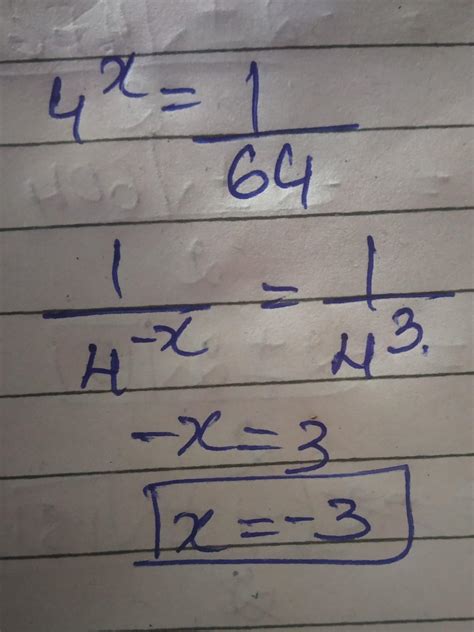 4^x = 1/64
1/4^-x = 1/4^3.
-x = 3
x = -3